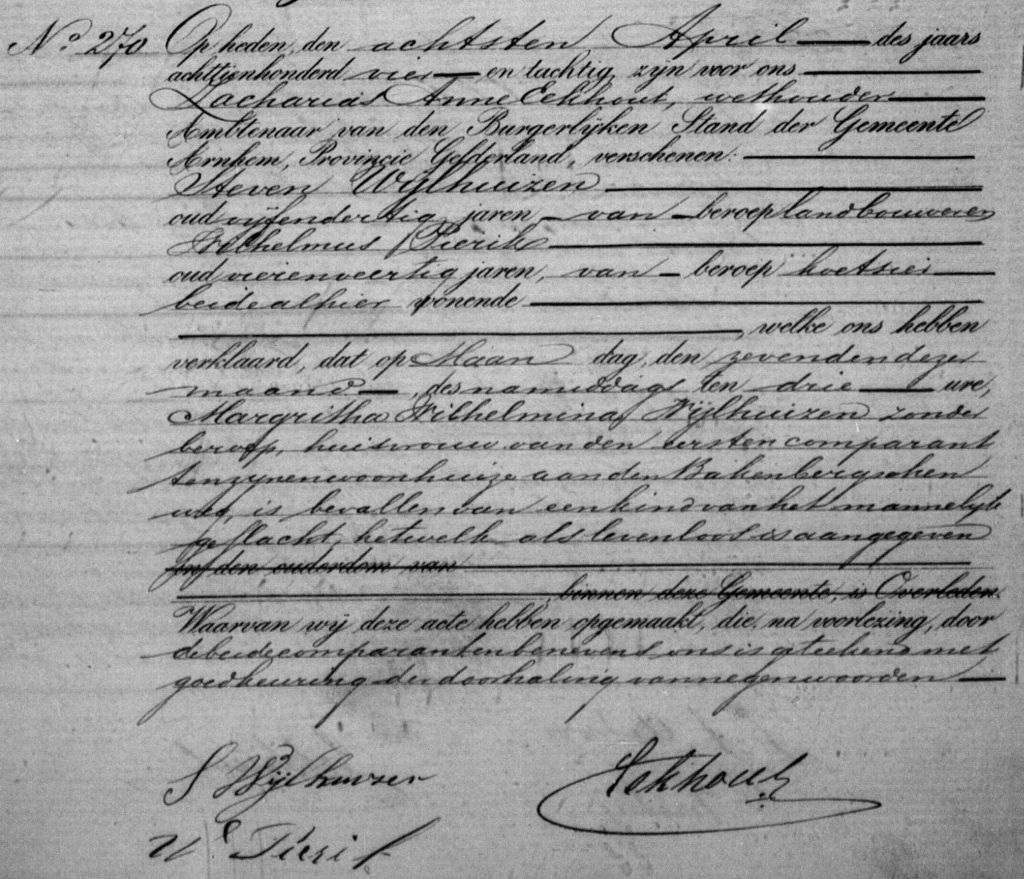 No. 270 Op heden, den achtsten April des jaars
achttienhonderd vier en tachtig, zijn voor ons
Zacharias Anne Eekhout, wethouder
Ambtenaar van den Burgerlijken Stand der Gemeente
Arnhem, Provincie Gelderland, verschenen:
Steven Wijlhuizen
oud vijfendertig jaren, van beroep landbouwer en
Wilhelmus Pierik
oud vierenveertig jaren, van beroep koetsier
beide alhier wonende
, welke ons hebben
verklaard, dat op Maan dag, den zevenden dezer
maand, des namiddags ten drie ure,
Margritha Wilhelmina Wijlhuizen zonder
beroep, huisvrouw van den eersten comparant
ten zynen woonhuize aan den Bakenbergschen
weg, is bevallen van een kind van het mannelijk
geslacht, hetwelk als levenloos is aangegeven
in den ouderdom van
, binnen deze Gemeente, is Overleden.
Waarvan wij deze acte hebben opgemaakt, die, na voorlezing, door
de beide comparanten benevens ons is geteekend met
goedkeuring der doorhaling van negen woorden
S Wijlhuizen
Eekhout
W Pierik